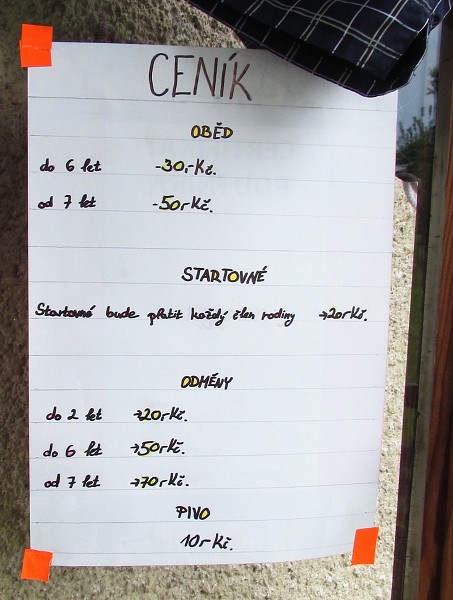 CENÍK
OBĚD
do 6 let -30,-Kč.
od 7 let -50,-Kč.
STARTOVNÉ
Startovné bude platit každý člen rodiny →20,-Kč.
ODMĚNY
do 2 let →20,-Kč.
do 6 let →50,-Kč.
od 7 let →70,-Kč.
PIVO
10,-Kč.